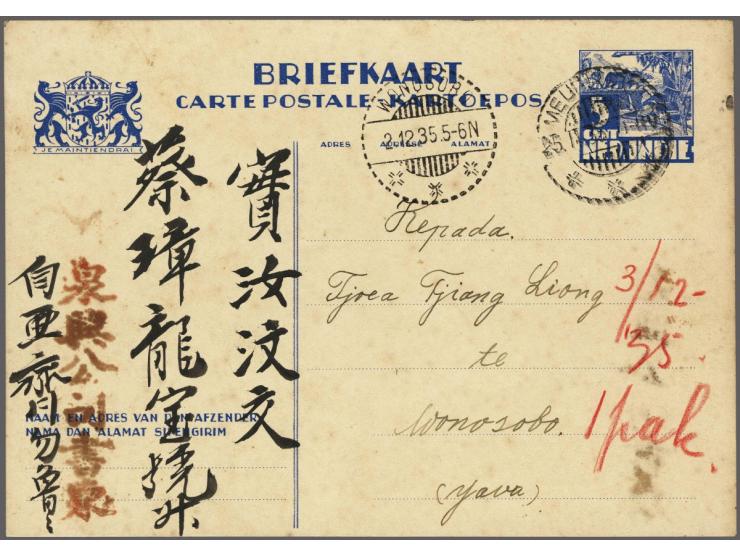 BRIEFKAART
CARTE POSTALE KARTOEPOS
JE MAINTIENDRAI
ADRES ADRESSE ALAMAT
WONOSOBO
2.12.35.5-6N
5
CENT
NED. INDIE
Kepada.
Tjoea Tjiang Liong
te
Wonosobo.
(Java)
3/12-
35.
1 pak.
寶汶文
蔡璋龍宝號升
泉興公司書柬
自亚齊
NAAM EN ADRES VAN DEN AFZENDER
NAMA DAN ALAMAT SI PENGIRIM